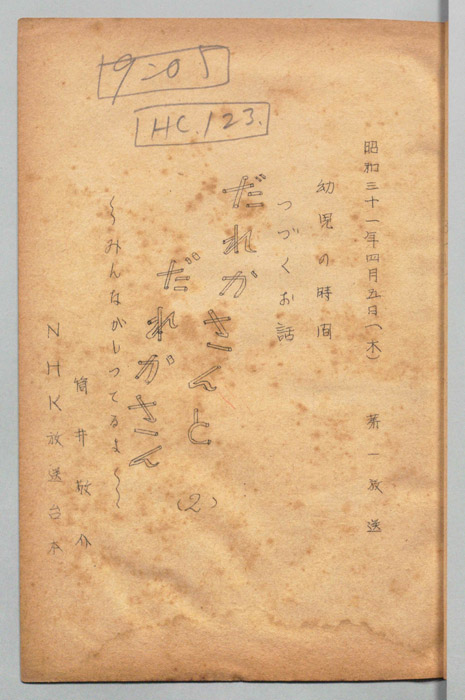 9=05
HC.123.
昭和三十一年四月五日(木) 第一放送
幼児の時間
つづくお話
だれかさんと
だれかさん
(2)
～みんながしってるよ～
筒井敬介
NHK放送台本